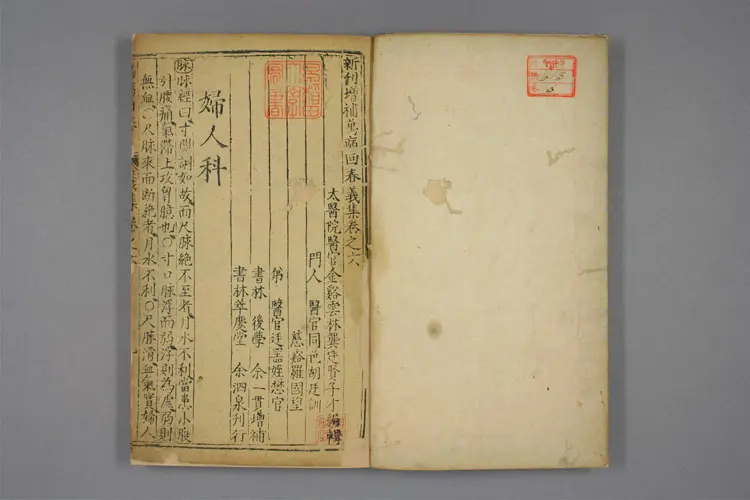 新刊增補萬病回春義集卷之六
太醫院醫官金谿雲林龔廷賢子才編輯
門人 醫官同邑胡廷訓
慈谿羅國望
弟 醫官廷器姪懋官
書林 後學 余一貫增補
書林萃慶堂 余泗泉刊行
婦人科
脉脉經曰寸關調如故而尺脉絶不至者月水不利當患小腹
引腰痛氣滯上攻胷臆也〇寸口脉浮而弱浮則為虚弱則
無血〇尺脉來而断絶者月水不利〇尺脉滑血氣實婦人